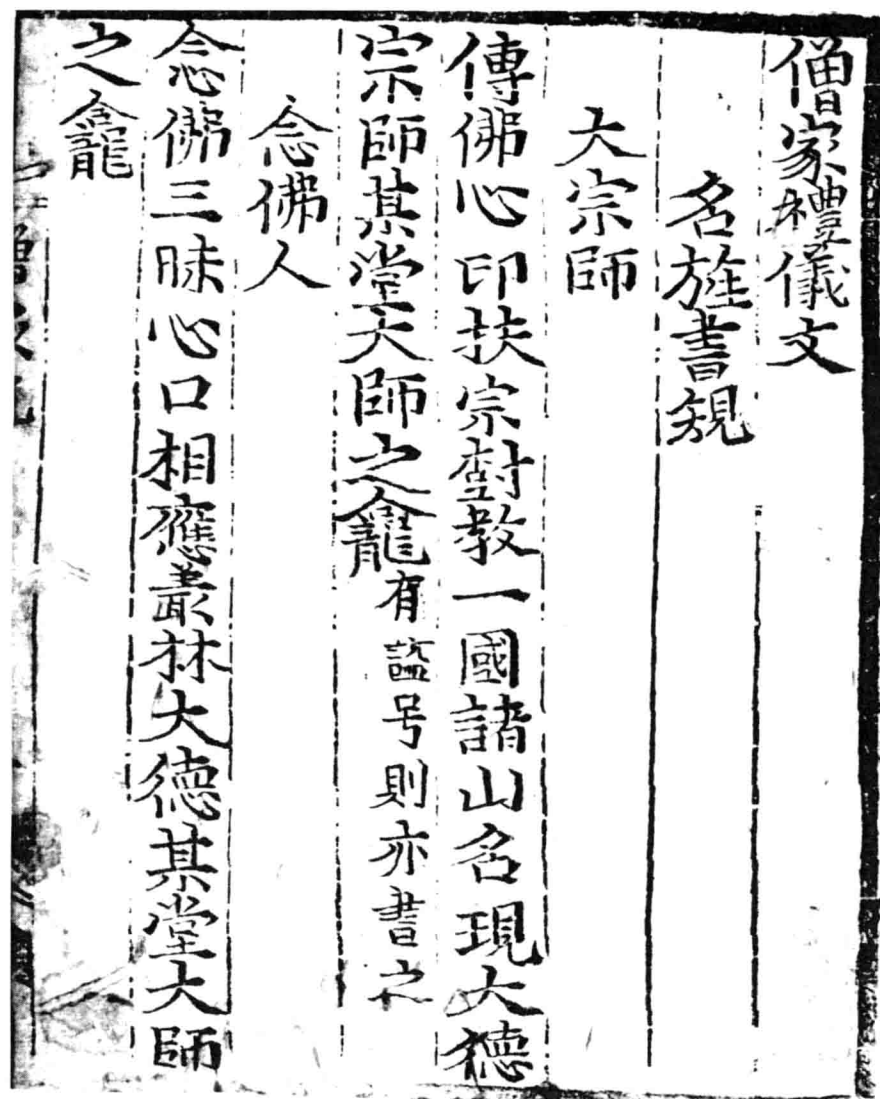 僧家禮儀文
名旌書規
大宗師
傳佛心印扶宗對教一國諸山名現大德
宗師某堂大師之龕有謚号則亦書之
念佛人
念佛三昧心口相應叢林大德某堂大師
之龕